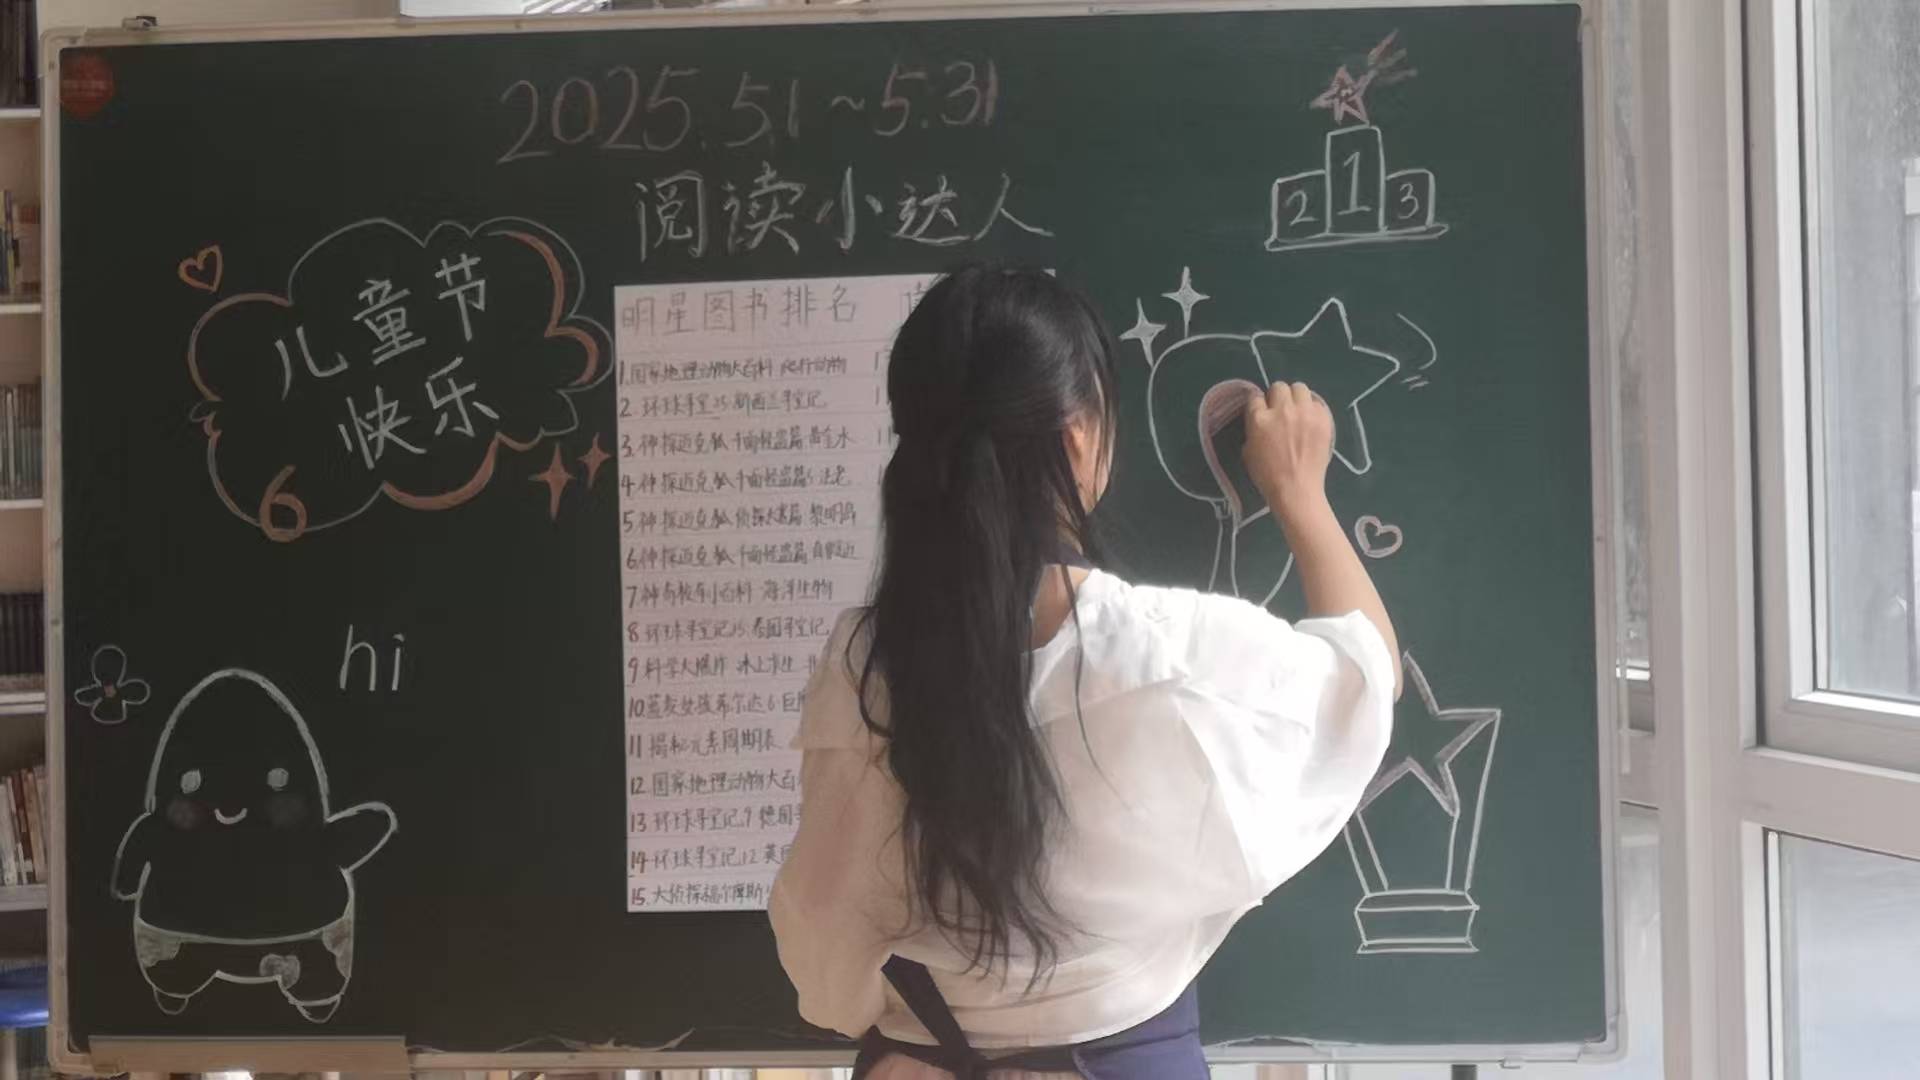 2025.5.1~5.31
阅读小达人
2 1 3
儿童节
快乐
6
hi
明星图书排名
1.国家地理动物大百科 爬行动物
2.环球寻宝记 新西兰寻宝记
3.神探迈克狐 千面怪盗篇 黄金水
4.神探迈克狐 千面怪盗篇 法老
5.神探迈克狐 侦探大赛篇 黎明岛
6.神探迈克狐 千面怪盗篇
7.神奇校车小百科 海洋生物
8.环球寻宝记15:泰国寻宝记
9.科学大爆炸 冰上求生
10.蓝麦女孩希尔达6:巨
11.揭秘元素周期表
12.国家地理动物大百
13.环球寻宝记9 德国
14.环球寻宝记12 英国
15.大侦探福尔摩斯